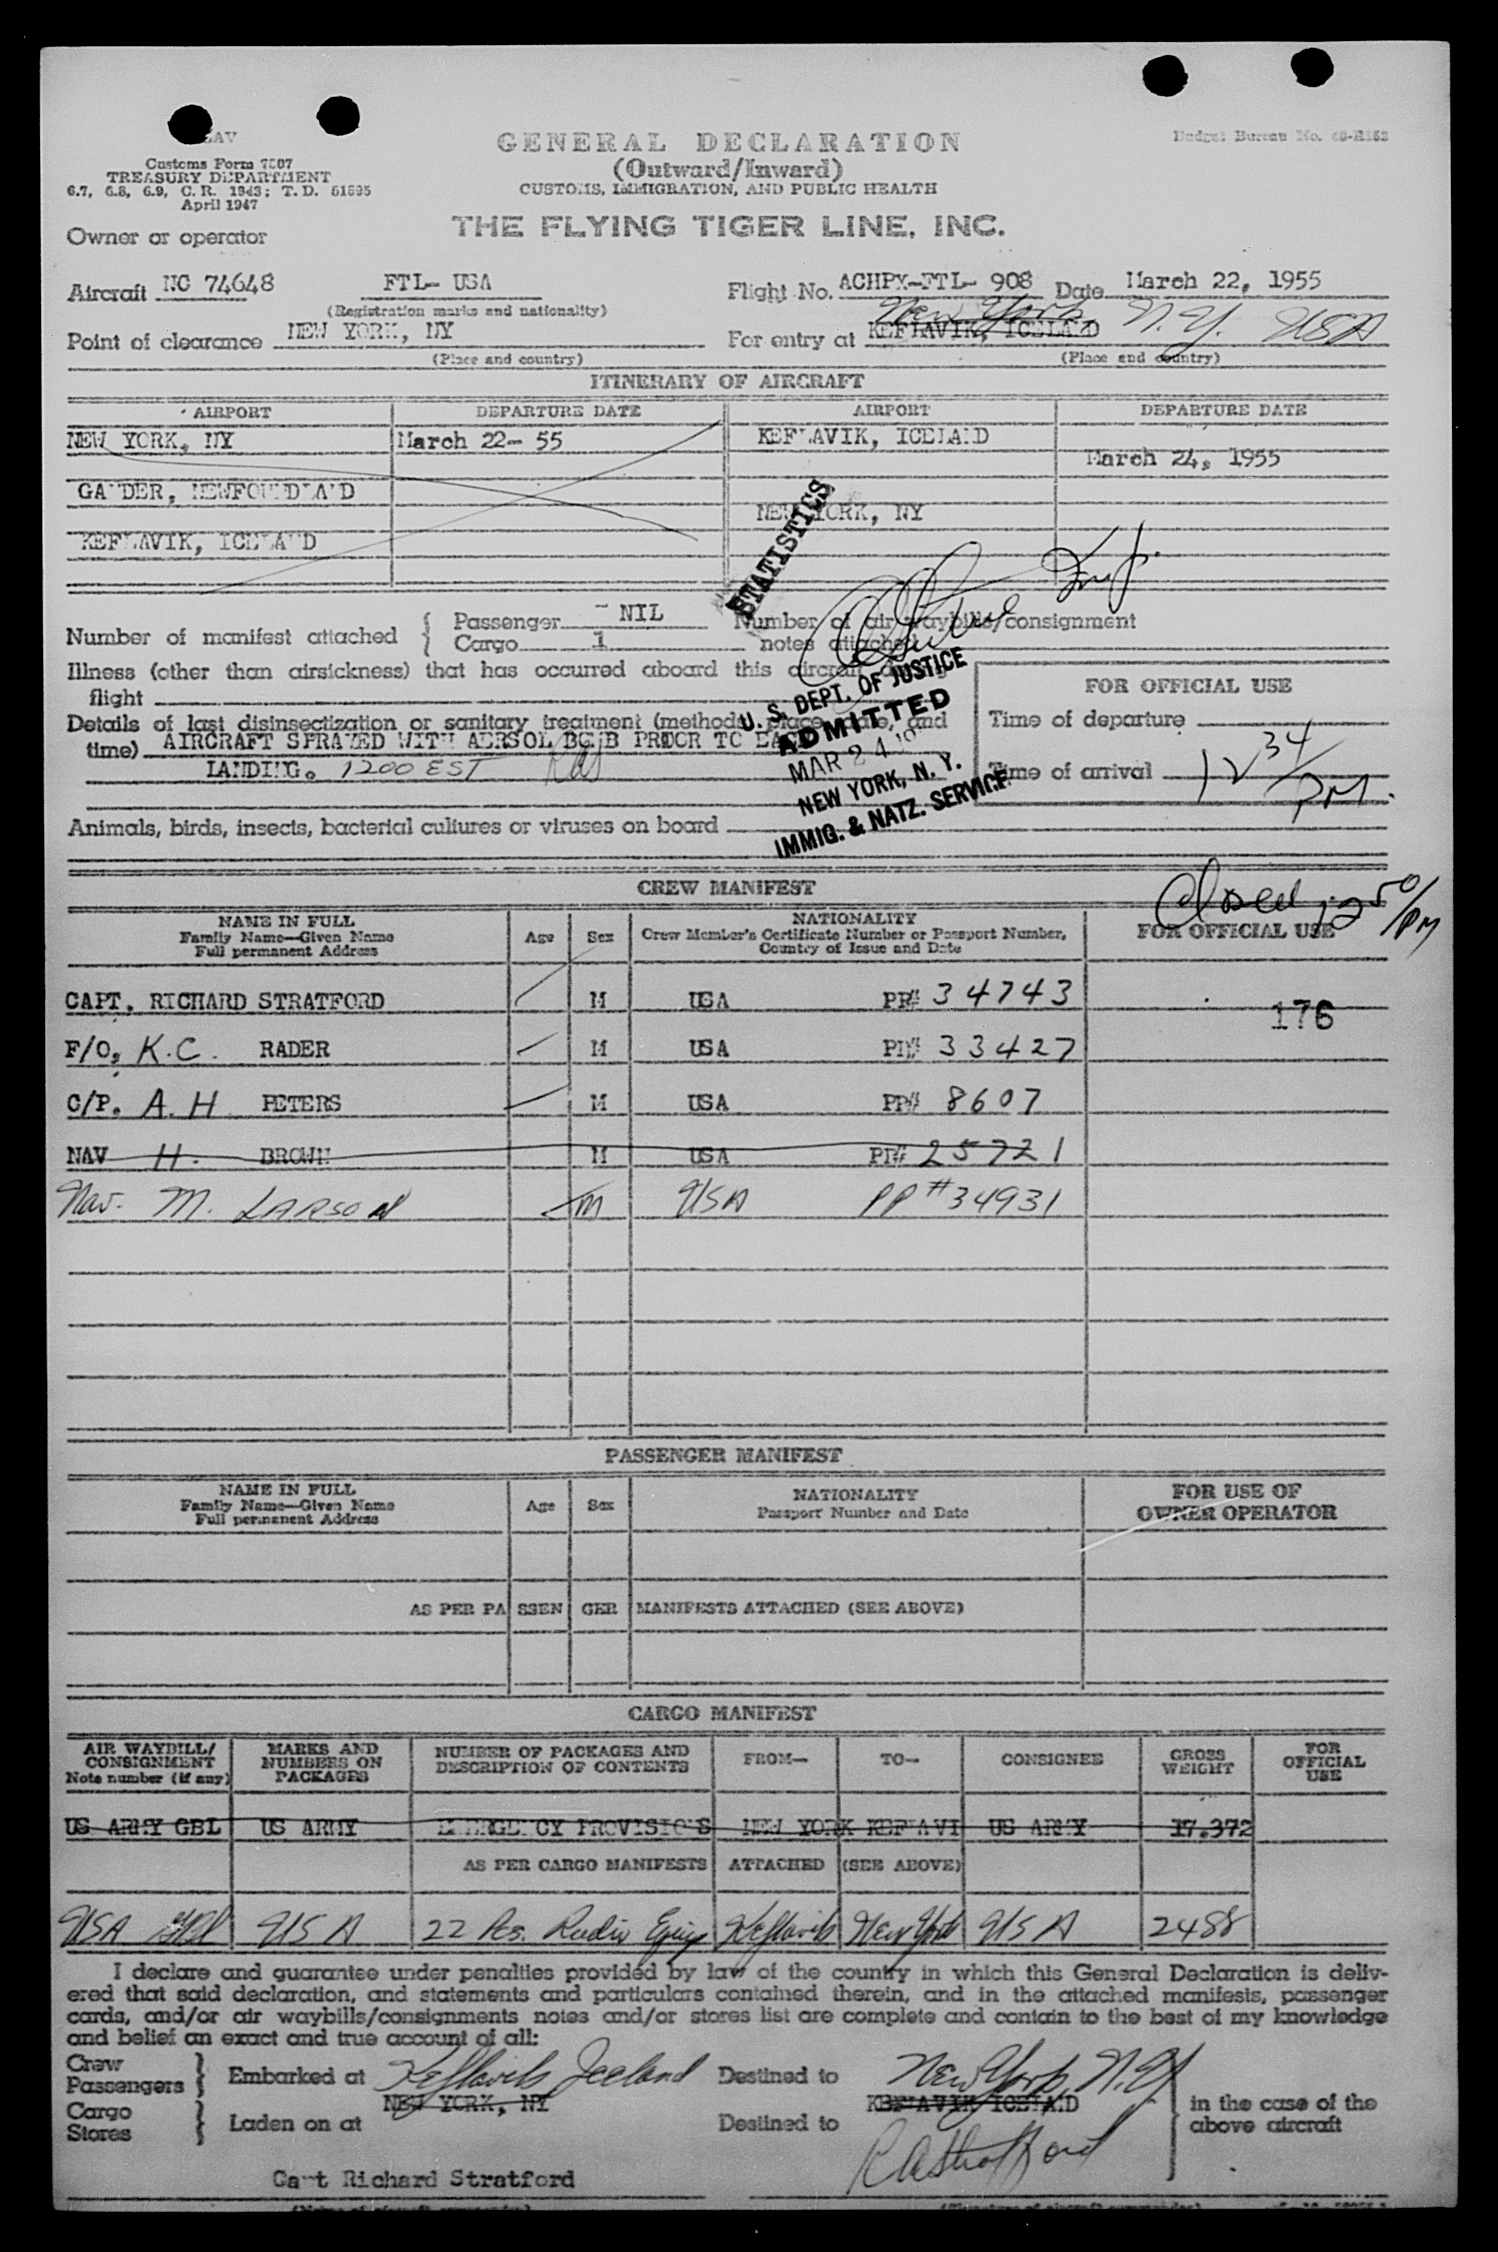 GENERAL DECLARATION
Budget Bureau No.
(Outward/Inward)
Customs Form 7507
TREASURY DEPARTMENT
CUSTOMS, IMMIGRATION, AND PUBLIC HEALTH
6.7, 6.8, 6.9, C. R. 1943; T. D. 51595
April 1947
THE FLYING TIGER LINE, INC.
Owner or operator
Aircraft NC 74648 FTL- USA Flight No. ACHPX-FTL- 908 Date March 22, 1955
(Registration marks and nationality)
New York N.Y. USA
Point of clearance NEW YORK, NY For entry at KEFLAVIK, ICELAND
(Place and country) (Place and country)
ITINERARY OF AIRCRAFT
AIRPORT DEPARTURE DATE AIRPORT DEPARTURE DATE
NEW YORK, NY March 22- 55 KEFLAVIK, ICELAND
March 24, 1955
GANDER, NEWFOUNDLAND
NEW YORK, NY
KEFLAVIK, ICELAND
STATISTICS
Number of manifest attached { Passenger - NIL Number of air waybills/consignment
Cargo 1 notes attached
Illness (other than airsickness) that has occurred aboard this aircraft during
flight
FOR OFFICIAL USE
Details of last disinsectization or sanitary treatment (method, place, date, and
time) AIRCRAFT SPRAYED WITH AERSOL BOMB PRIOR TO EACH
LANDING. 1200 EST RAS
Time of departure
Time of arrival 12 34/PM.
U. S. DEPT. OF JUSTICE
ADMITTED
MAR 24
NEW YORK, N. Y.
IMMIG. & NATZ. SERVICE
Animals, birds, insects, bacterial cultures or viruses on board
CREW MANIFEST
Closed 1250/PM
NAME IN FULL
Family Name—Given Name
Full permanent Address
Age Sex
NATIONALITY
Crew Member's Certificate Number or Passport Number,
Country of Issue and Date
FOR OFFICIAL USE
CAPT. RICHARD STRATFORD M USA PP# 34743
176
F/O, K.C. RADER M USA PP# 33427
C/P. A. H PETERS M USA PP# 8607
NAV H. BROWN M USA PP# 25721
Nav. M. LARSON M USA PP #34931
PASSENGER MANIFEST
NAME IN FULL
Family Name—Given Name
Full permanent Address
Age Sex
NATIONALITY
Passport Number and Date
FOR USE OF
OWNER OPERATOR
AS PER PASSENGER MANIFESTS ATTACHED (SEE ABOVE)
CARGO MANIFEST
AIR WAYBILL/
CONSIGNMENT
Note number (if any)
MARKS AND
NUMBERS ON
PACKAGES
NUMBER OF PACKAGES AND
DESCRIPTION OF CONTENTS
FROM— TO— CONSIGNEE
GROSS
WEIGHT
FOR
OFFICIAL
USE
US ARMY GBL US ARMY EMERGENCY PROVISIONS NEW YORK KEFLAVI US ARMY 17.372
AS PER CARGO MANIFESTS ATTACHED (SEE ABOVE)
USA GBL USA 22 Pcs. Radio Equip Keflavik New York USA 2488
I declare and guarantee under penalties provided by law of the country in which this General Declaration is deliv-
ered that said declaration, and statements and particulars contained therein, and in the attached manifests, passenger
cards, and/or air waybills/consignments notes and/or stores list are complete and contain to the best of my knowledge
and belief an exact and true account of all:
Crew
Passengers } Embarked at Keflavik Iceland Destined to New York, N.Y
NEW YORK, NY KEFLAVIK ICELAND
Cargo
Stores } Laden on at Destined to
in the case of the
above aircraft
Capt Richard Stratford RA Stratford